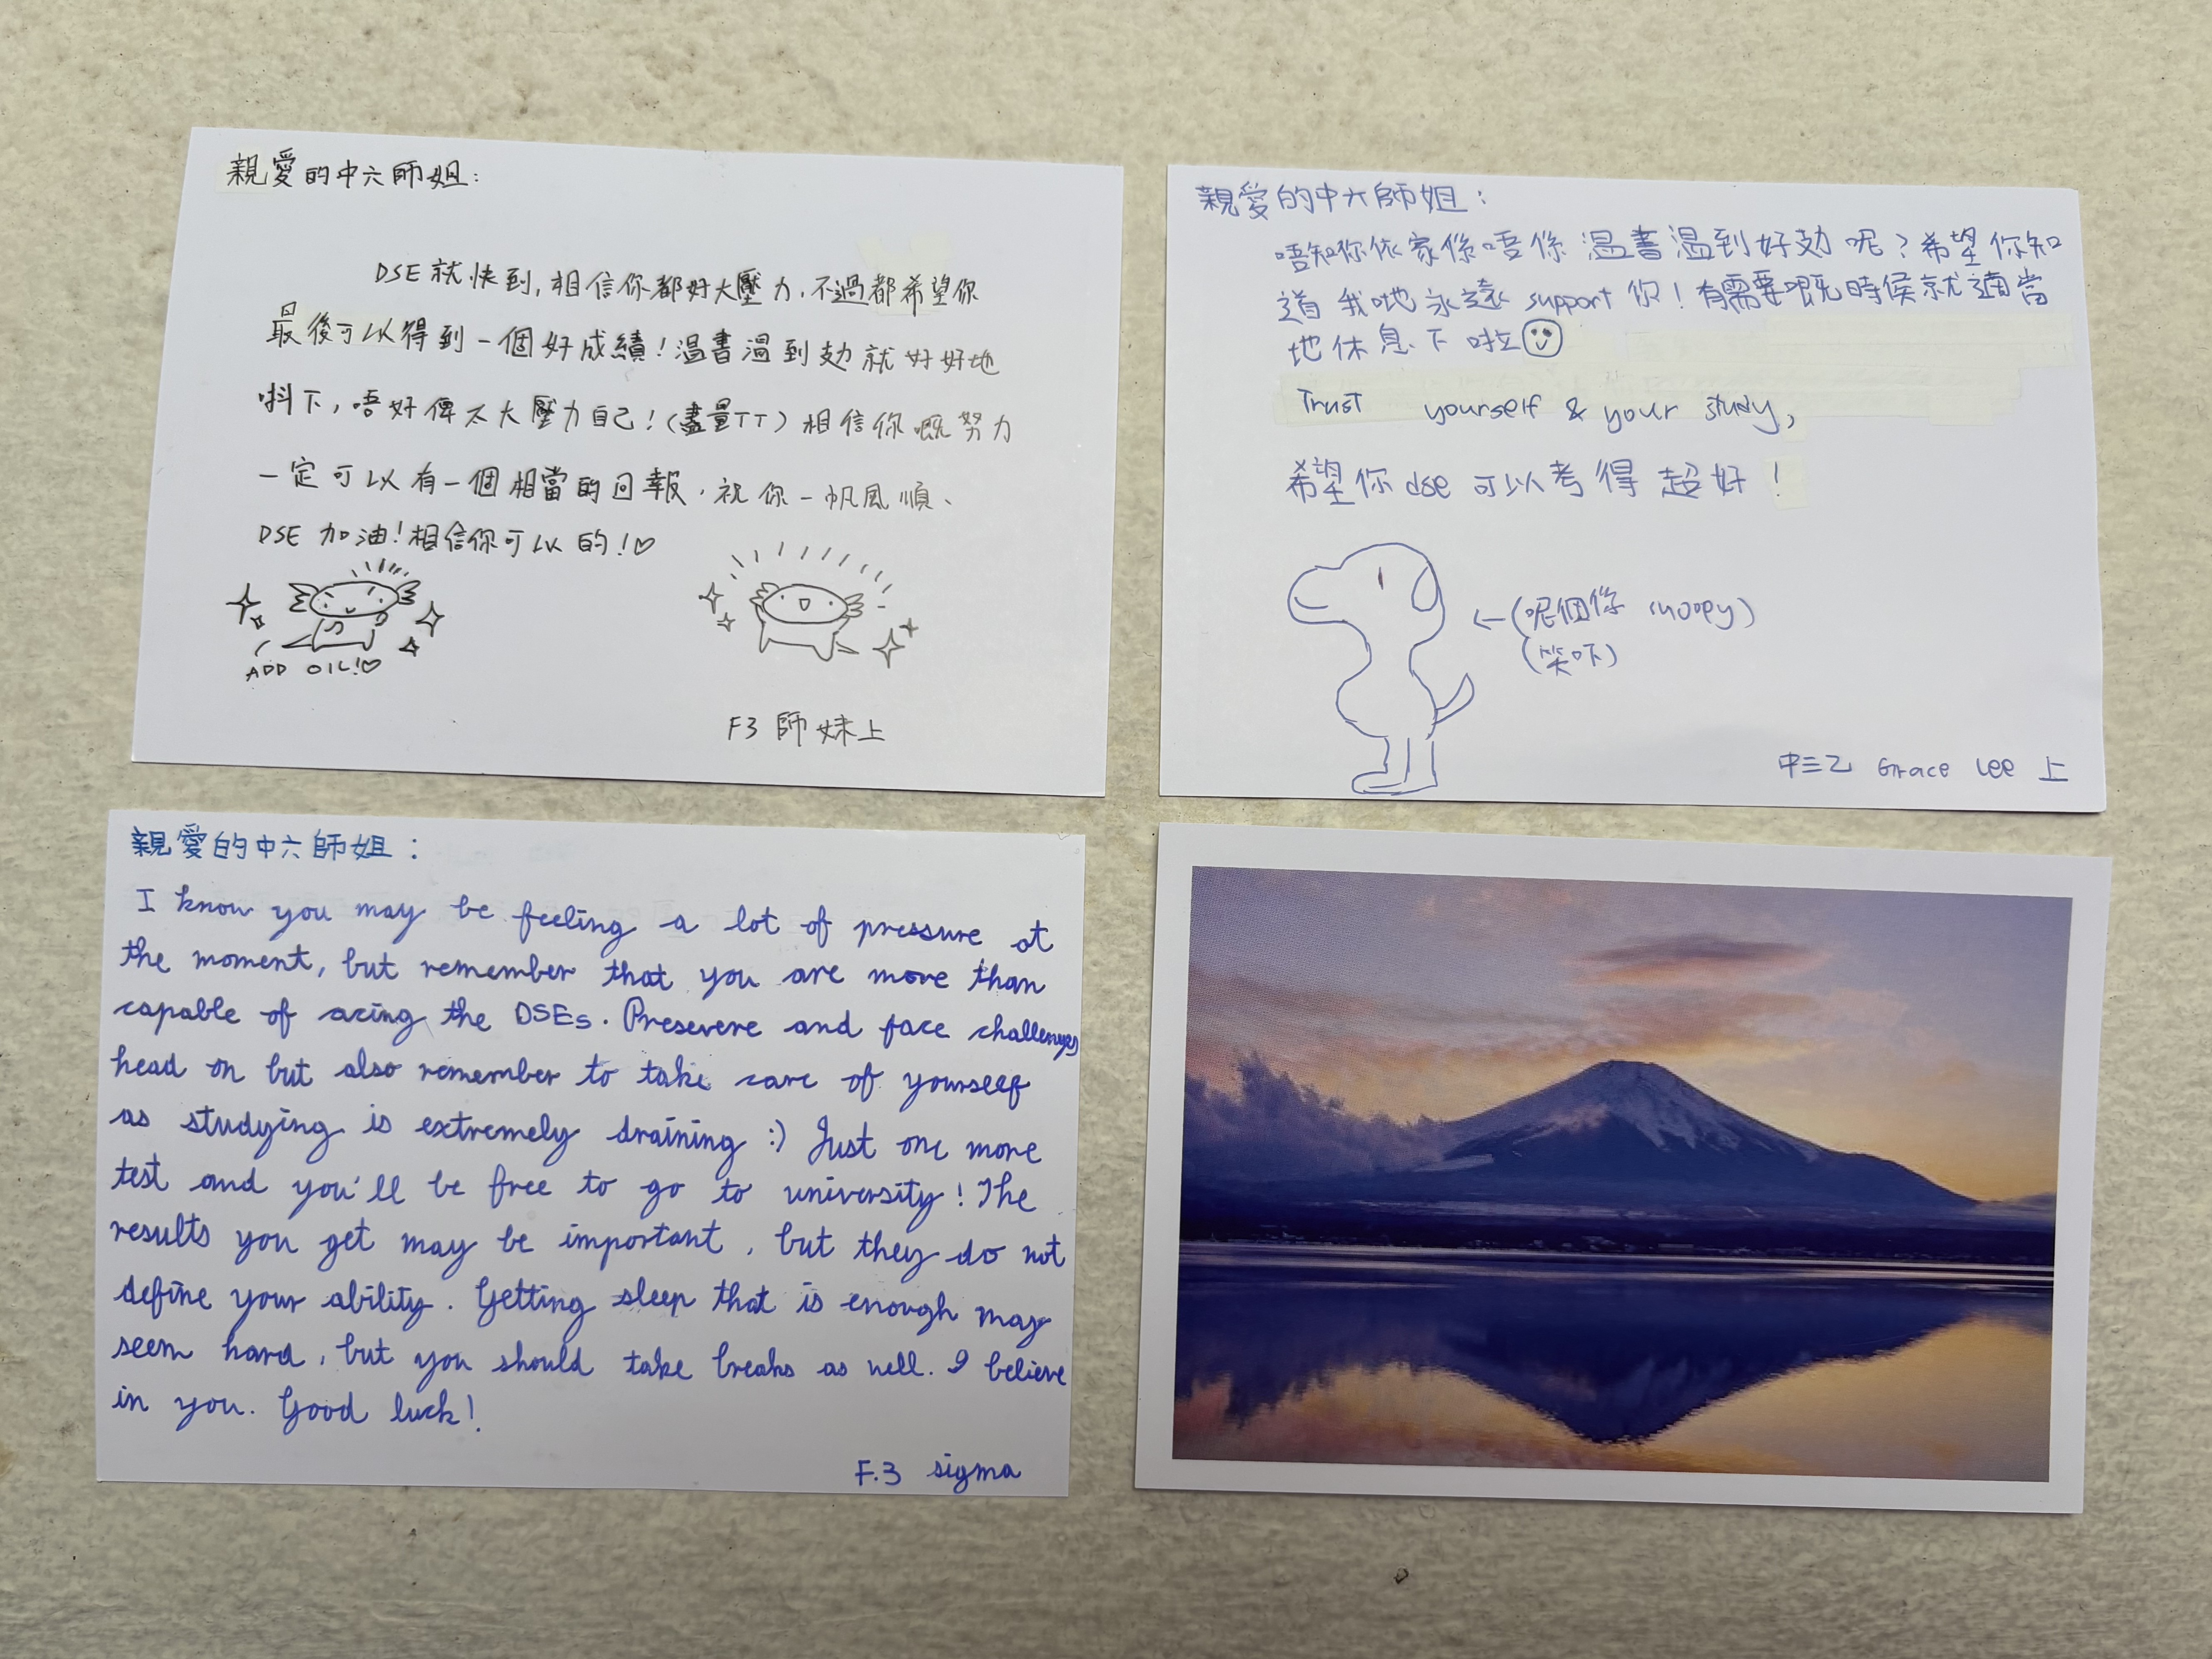 親愛的中六師姐：
DSE就快到,相信你都好大壓力,不過都希望你
最後可以得到一個好成績！温書温到攰就好好地
唞下，唔好俾太大壓力自己！（盡量TT）相信你嘅努力
一定可以有一個相當的回報，祝你一帆風順、
DSE 加油！相信你可以的！♡
ADD OIL!♡
F3 師妹上
親愛的中六師姐：
唔知你依家係唔係温書温到好攰呢？希望你知
道我哋永遠 support 你！有需要嘅時侯就適當
地休息下啦
Trust yourself & your study,
希望你dse可以考得超好！
←(呢個係 snoopy)
(笑吓)
中三乙 Grace Lee 上
親愛的中六師姐：
I know you may be feeling a lot of pressure at
the moment, but remember that you are more than
capable of acing the DSEs. Presevere and face challenges
head on but also remember to take care of yourself
as studying is extremely draining :) Just one more
test and you'll be free to go to university! The
results you get may be important, but they do not
define your ability. Getting sleep that is enough may
seem hard, but you should take breaks as well. I believe
in you. Good luck!
F.3 sigma